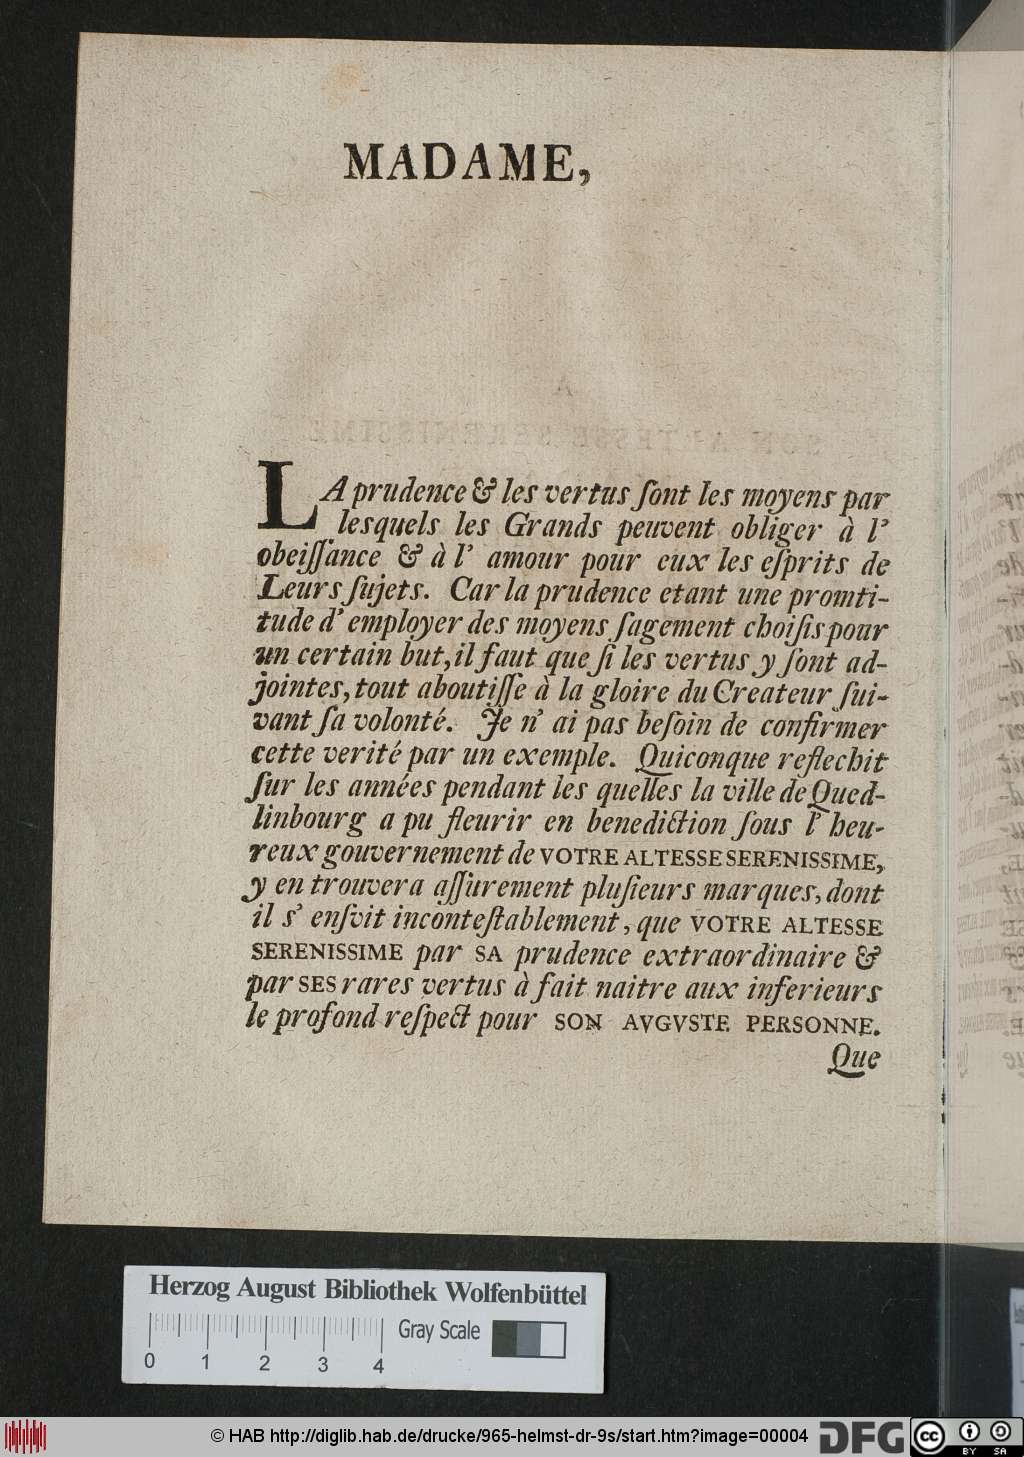 MADAME,
LA prudence & les vertus ſont les moyens par
lesquels les Grands peuvent obliger à l'
obeiſſance & à l' amour pour eux les eſprits de
Leurs ſujets. Car la prudence etant une promti-
tude d' employer des moyens ſagement choiſis pour
un certain but, il faut que ſi les vertus y ſont ad-
jointes, tout aboutiſſe à la gloire du Createur ſui-
vant ſa volonté. Je n' ai pas beſoin de confirmer
cette verité par un exemple. Quiconque reflechit
ſur les années pendant les quelles la ville de Qued-
linbourg a pu fleurir en benediction ſous l' heu-
reux gouvernement de VOTRE ALTESSE SERENISSIME,
y en trouvera aſſurement pluſieurs marques, dont
il s' enſvit inconteſtablement, que VOTRE ALTESSE
SERENISSIME par SA prudence extraordinaire &
par SES rares vertus à fait naitre aux inferieurs
le profond reſpect pour SON AVGVSTE PERSONNE.
Que
Herzog August Bibliothek Wolfenbüttel
Gray Scale
0 1 2 3 4
© HAB http://diglib.hab.de/drucke/965-helmst-dr-9s/start.htm?image=00004
DFG
cc BY SA